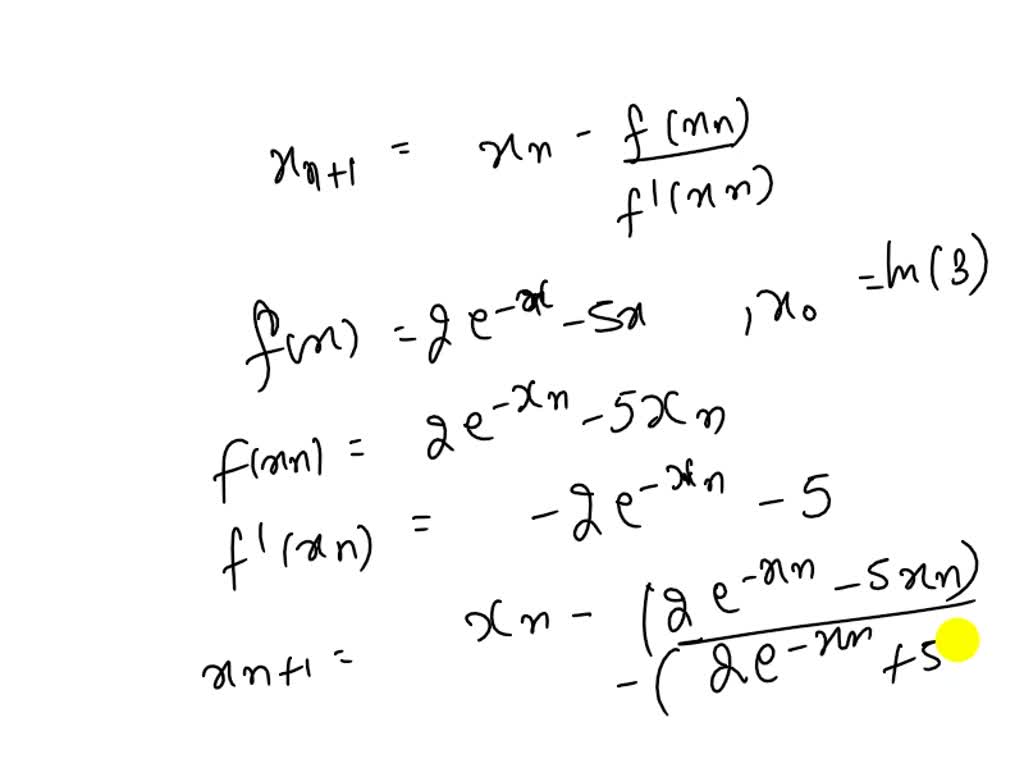 xn+1 = xn - f(xn)/f'(xn)
f(x) = 2e^-x - 5x , x0 = ln(3)
f(xn) = 2e^-xn - 5xn
f'(xn) = -2e^-xn - 5
xn+1 = xn - (2e^-xn - 5xn)/-(2e^-xn + 5